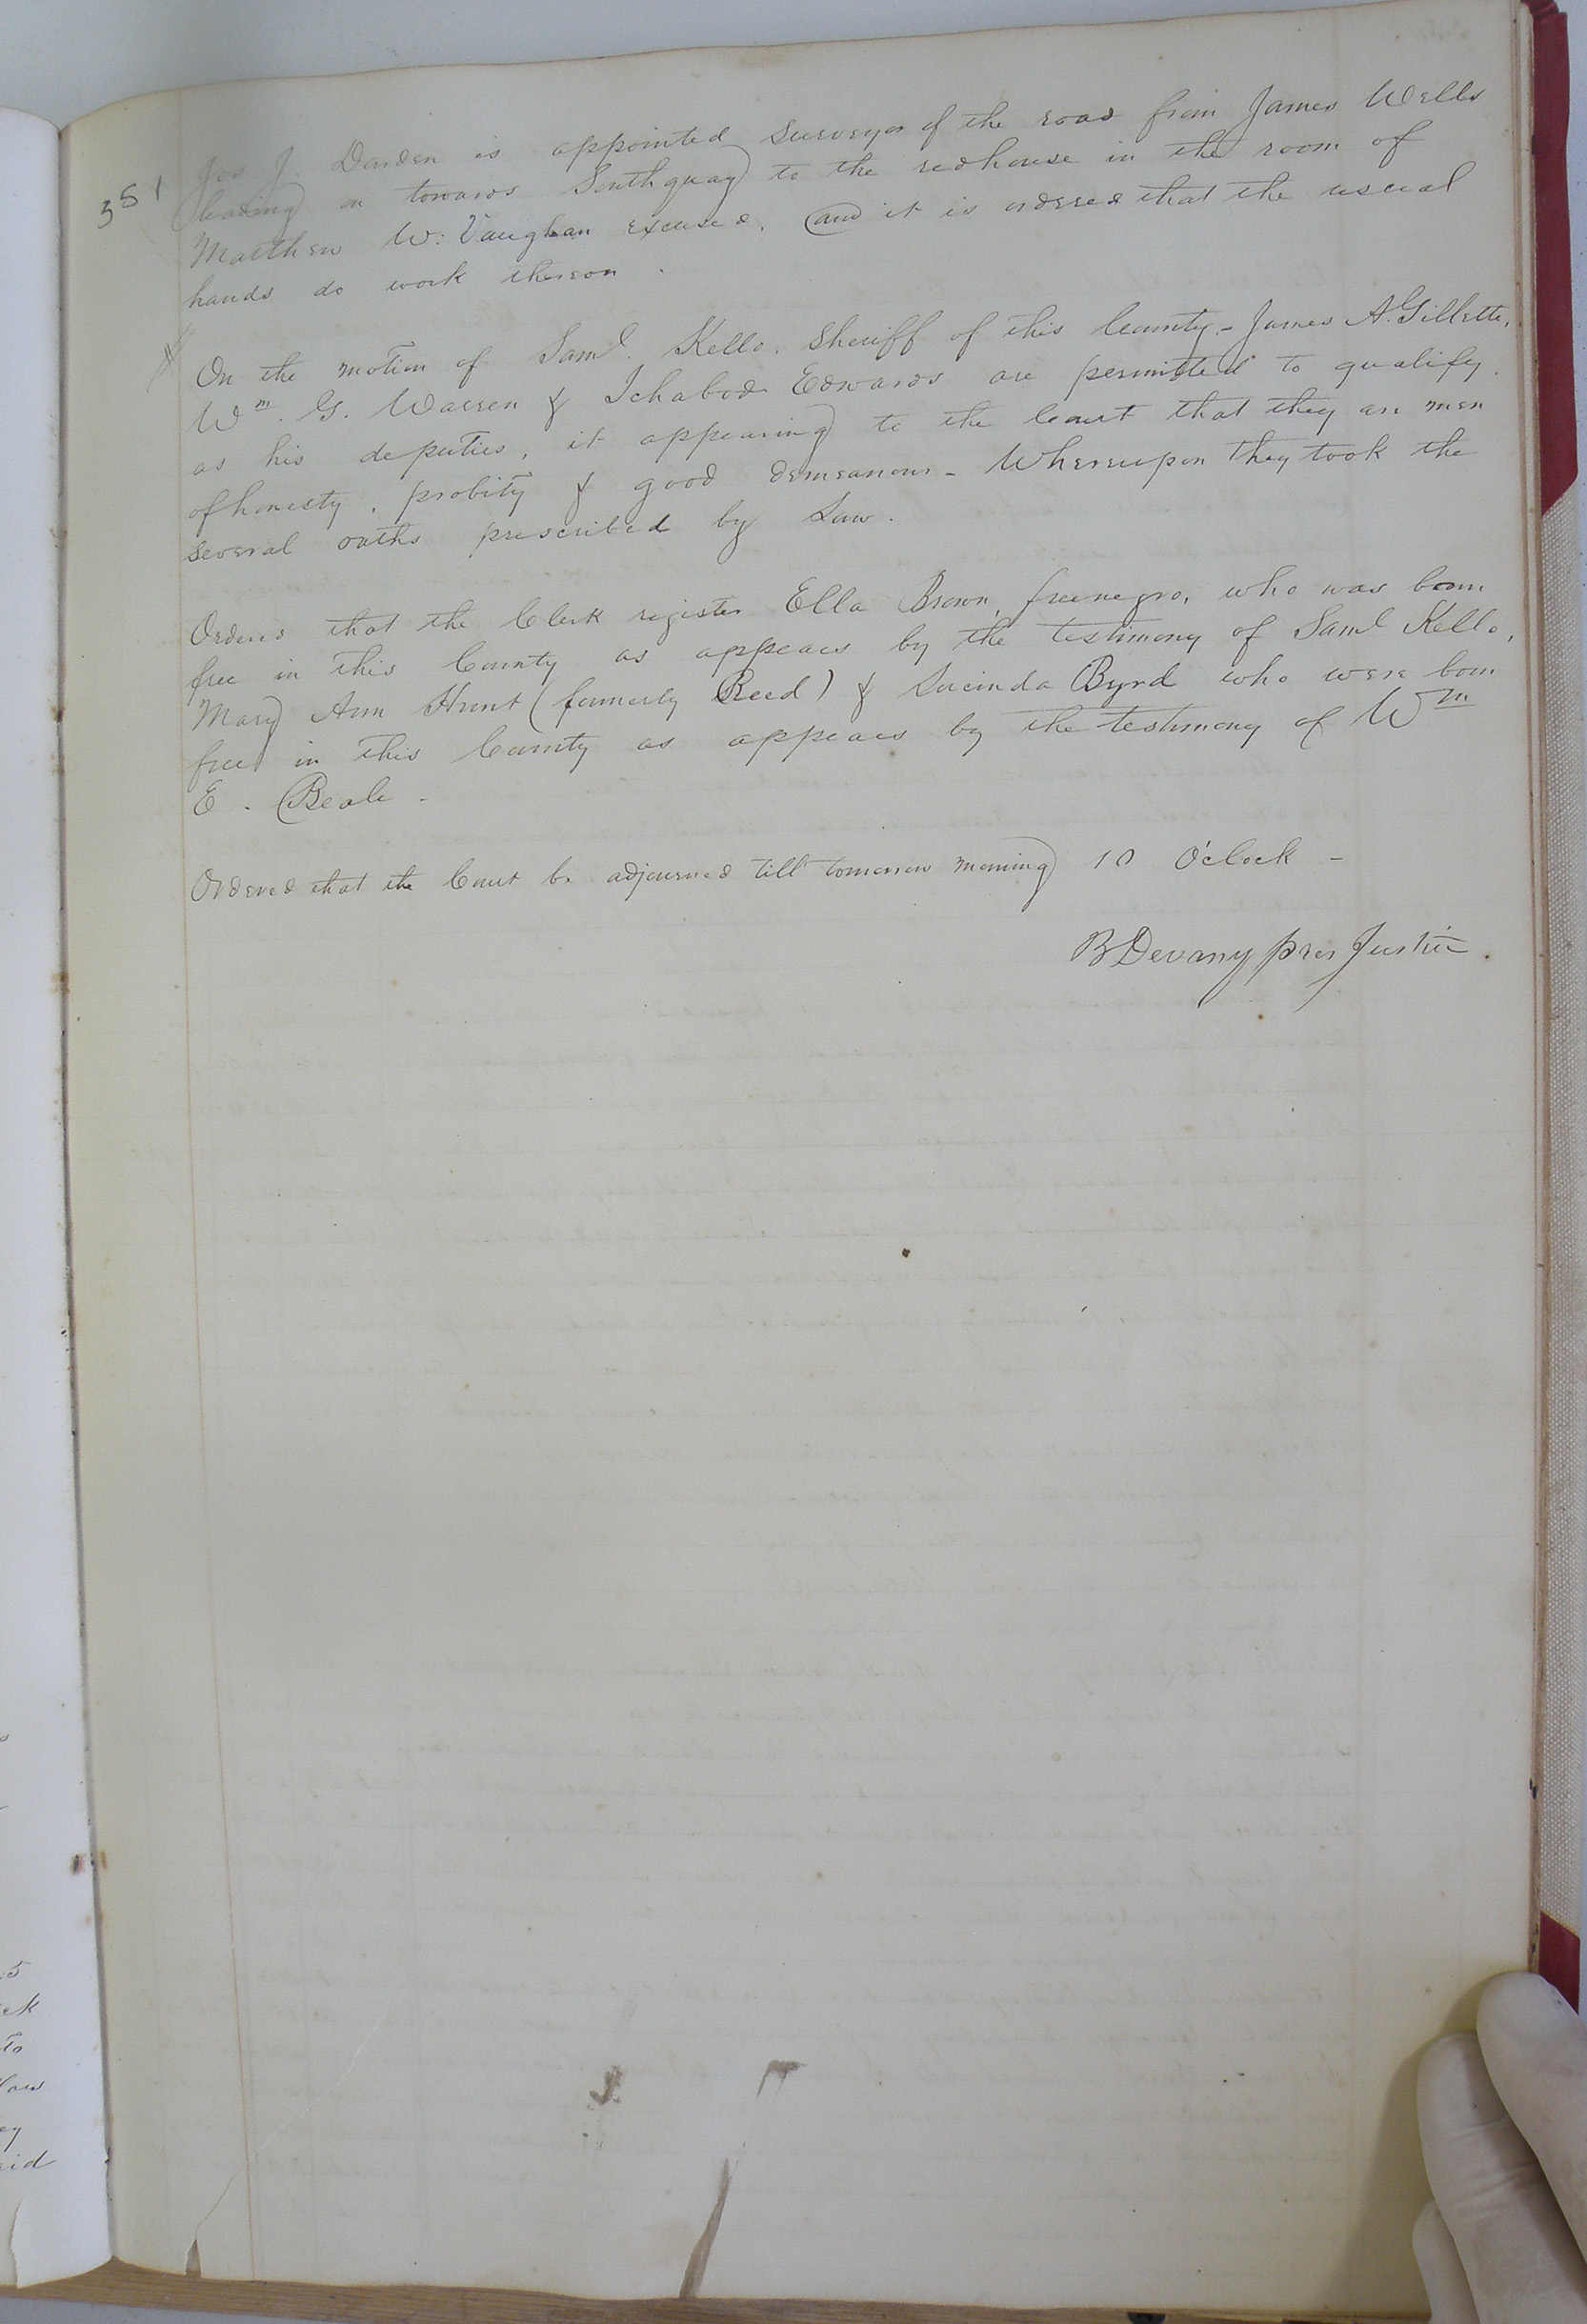 351
Jos J. Darden is appointed Surveyor of the road from James Wells
leading on towards Southquay to the redhouse in the room of
Matthew W: Vaughan excused, and it is ordered that the usual
hands do work thereon.
On the motion of Saml. Kello. Sheriff of this County - James A. Gillette,
Wm. G. Warren & Ichabod Edwards are permitted to qualify
as his deputies, it appearing to the Court that they are men
of honesty, probity & good demeanour - Whereupon they took the
several oaths prescribed by Law.
Ordered that the Clerk register Ella Brown, free negro, who was born
free in this County as appears by the testimony of Saml Kello,
Mary Ann Hunt (formerly Reed) & Lucinda Byrd who were born
free in this County as appears by the testimony of Wm
E. Beale.
Ordered that the Court be adjourned till tomorrow morning 10 O'clock -
B Devany pres Justice.
5
ck
To
ey
aid